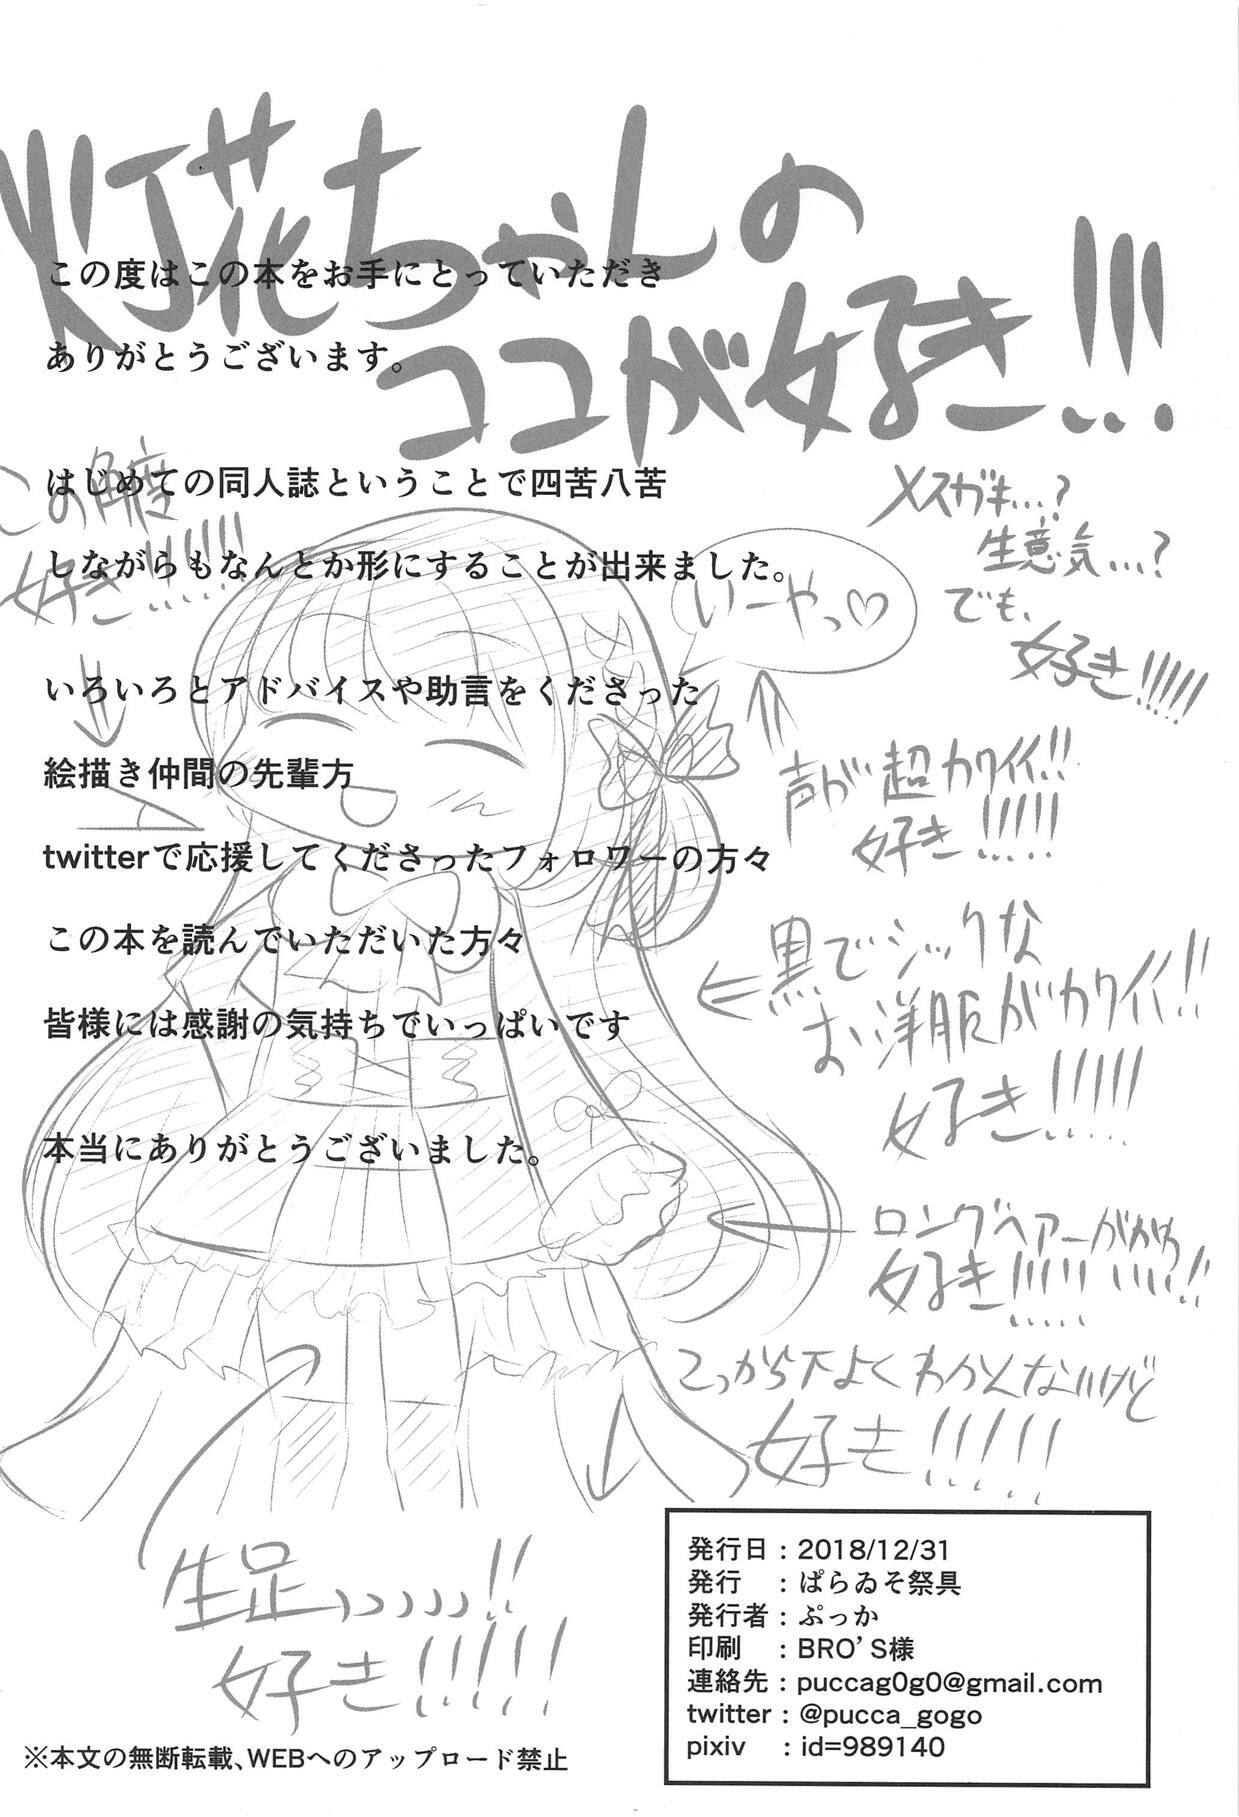 灯花ちゃんの
ココが好き!!!
この度はこの本をお手にとっていただき
ありがとうございます。
はじめての同人誌ということで四苦八苦
しながらもなんとか形にすることが出来ました。
いろいろとアドバイスや助言をくださった
絵描き仲間の先輩方
twitterで応援してくださったフォロワーの方々
この本を読んでいただいた方々
皆様には感謝の気持ちでいっぱいです
本当にありがとうございました。
この角度
好き!!!!!
いーやっ♡
メスガキ...?
生意気...?
でも、
好き!!!!!
声が超カワイイ!!
好き!!!!!
黒でシックな
お洋服がカワイイ!!
好き!!!!!
ロングヘアーがかわ
好き!!!!!
こっから下よくわかんないけど
好き!!!!!
生足ッッッッッ!!
好き!!!!!
※本文の無断転載、WEBへのアップロード禁止
発行日：2018/12/31
発行　：ぱらゐそ祭具
発行者：ぷっか
印刷　：BRO'S様
連絡先：puccag0g0@gmail.com
twitter：@pucca_gogo
pixiv　：id=989140